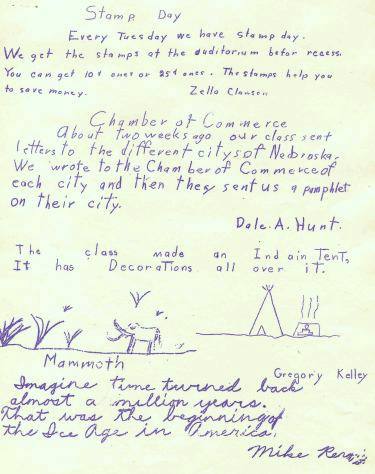 Stamp Day
Every Tuesday we have stamp day.
We get the stamps at the auditorium befor recess.
You can get 10¢ ones or 25¢ ones. The stamps help you
to save money. Zella Clansen
Chamber of Commerce
About two weeks ago our class sent
letters to the different citys of Nebraska.
We wrote to the Chamber of Commerce of
each city and then they sent us a pamphlet
on their city.
Dale. A. Hunt.
The class made an Indain Tent,
It has Decorations all over it.
Gregory Kelley
Mammoth
Imagine time turned back
almost a million years.
That was the beginning of
the Ice Age in America.
Mike